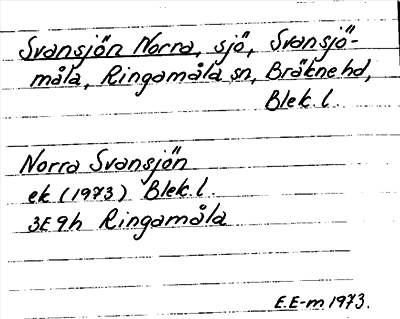 Svansjön Norra, sjö, Svansjö-
måla, Ringamåla sn, Bräkne hd,
Blek. l.
Norra Svansjön
ek (1973) Blek. l.
3E9h Ringamåla
E.E-m 1973.